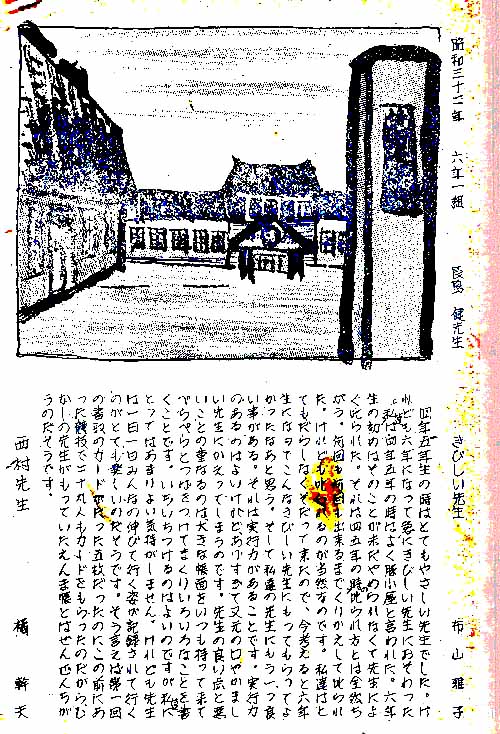 昭和三十三年 六年一組 長島 健先生
きびしい先生 市山 雅子
四年五年生の時はとてもやさしい先生でした。け
れども六年になって急にきびしい先生におそわった
私は四年五年の時はよく豚小屋と言われた。六年
生の初めはそのことが未だやめられなくて先生によ
く叱られた。それは四五年の時叱られ方とは全然ち
がう。何回も何回も出来るまでくりかえして叱られ
た。けれども叱られるのが当然なのです。私達はと
てもだらしなくそだって来たので、今考えると六年
生になってこんなきびしい先生にもってもらってよ
かったなあと思う。そして私達の先生にもう一つ良
い事がある。それは実行力があることです。実行力
のあるのはよいけれどありすぎて又元の口やかまし
い先生にかえってしまうのです。先生の良い広と悪
いことの重なるのは大きな帳面をいつも持って来て
ぺらぺらとつばをつけてまくりいろいろなことを書
くことです。いちいちつけるのはよいのですが私に
とってはあまりよい気持がしません。けれども先生
は一日一日みんなの伸びて行く姿が記録されて行く
のがとても楽しいのだそうです。そう言えば第一回
の書取のカードがたった五枚だったのにこの前にあ
った競技で二十九人もカードをもらったのだからむ
かしの先生がもっていたえんま帳とはぜんぜんちが
うのだそうです。
西村先生 橘 幹夫